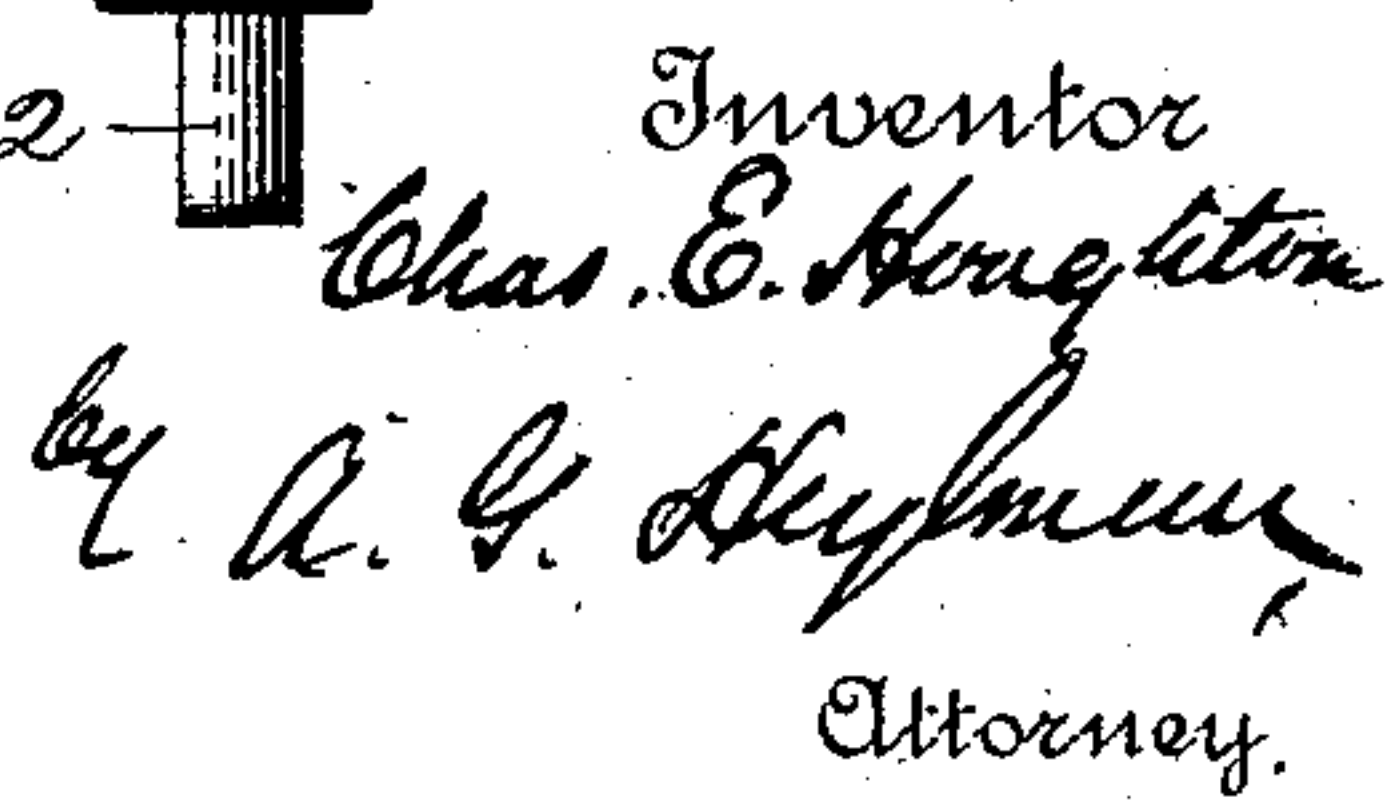 2
Inventor
Chas. E. Houghton
by A. G. Heylmun,
Attorney.